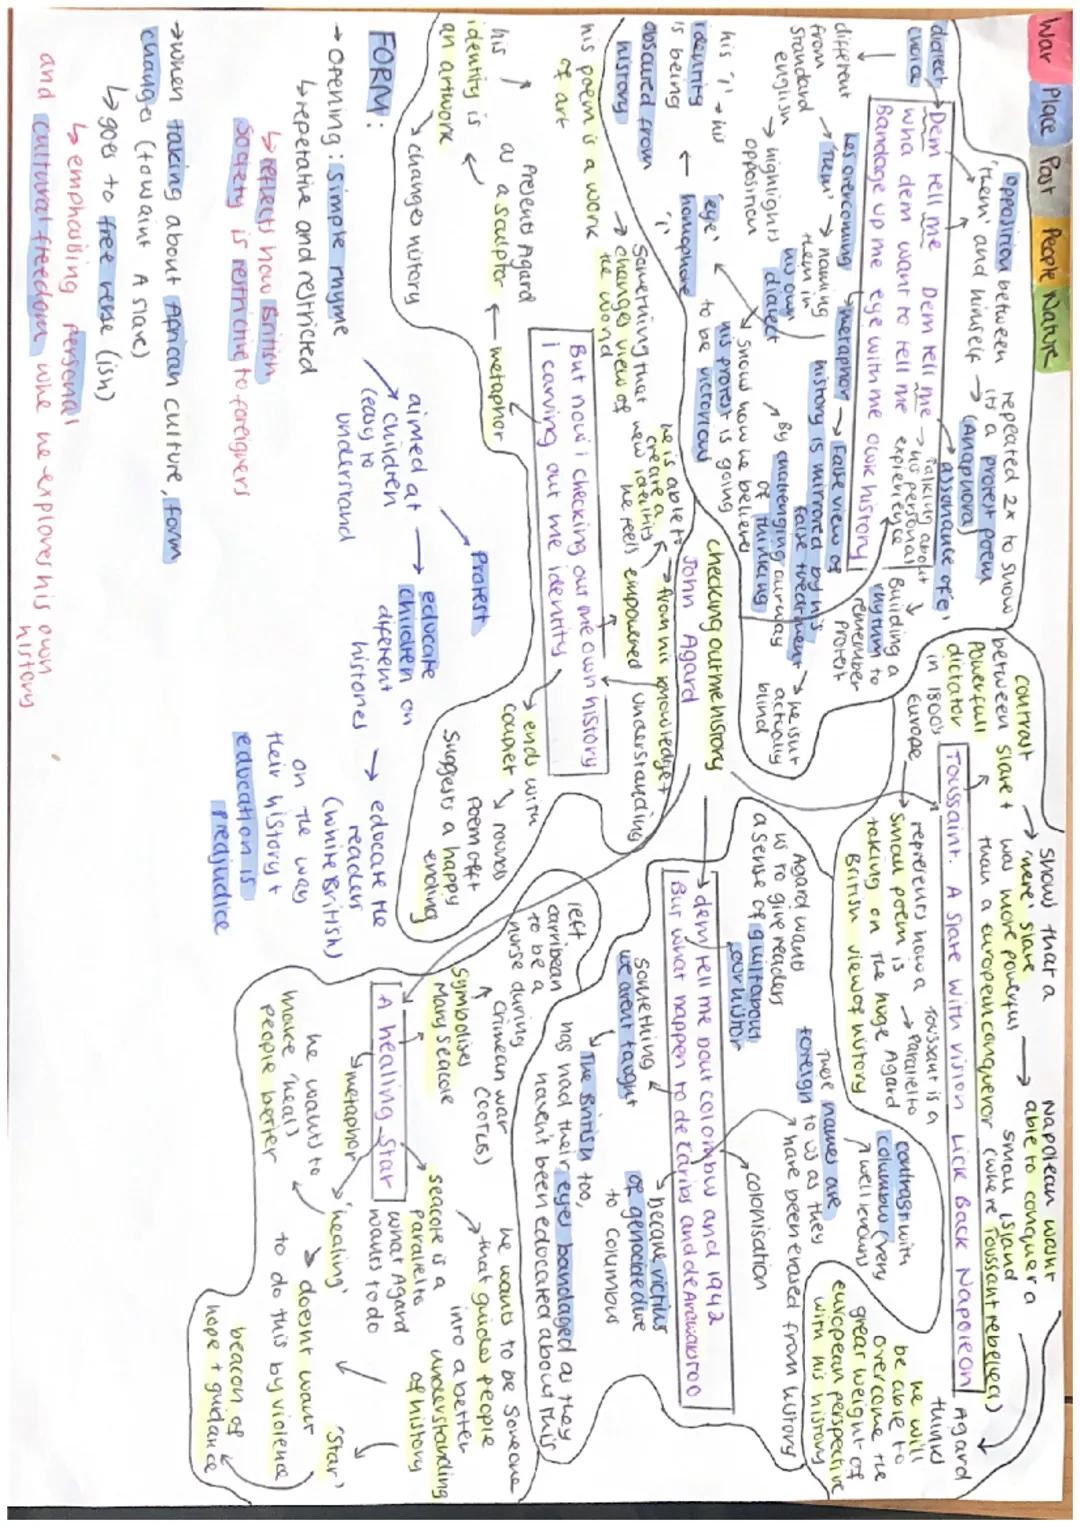 War Place Past People Nature
opposition between
'them' and himself → (Anaphora)
repeated 2x to show
its a protest poem
dialect
choice
different
from
standard
english
Dem tell me Dem tell me
wha dem want to tell me
Bandage up me eye with me own history
→ assonance of 'e'
→ Talking about
his personal
experience
Building a
rhythm to
remember
protest
hes overcoming
'Them' → naming
them in
his own
dialect
→ highlights
opposition
metaphor → False view of
history is mirrored by his
false treatment → he isn't
actually
blind
By challenging our way
of thinking
his 'i' → his
identity
is being
obscured from
history
← homophone
'eye'
'i'
→ show how he believes
his protest is going
to be victorious
checking out me history
John Agard
contrast
between slave +
powerfull
dictator
in 1800s
Europe
→ shows that a
'mere' slave
was more powerful
than a european conqueror
→ Napolean wasnt
able to conquer a
small island
(where Toussant rebelled)
Toussaint. A slave with vision Lick Back Napoleon
represents how a
small poem is
taking on the huge
British view of history
Toussant is a
→ Parallel to
Agard
contrast with
columbus (very
well known)
Agard
thinks
he will
be able to
overcome the
great weight of
european perspective
with his history
These names are
foreign to us as they
have been erased from history
Agard wants
us to give readers
a sense of guilt about
our histor
dem tell me bout colombus and 1942
But what happen to de Caribs and de Arawaks too
colonisation
something
we arent taught
became victims
of genocide due
to Columbus
→ The British too,
has had their eyes bandaged as they
havent been edocated about this
his poem is a work
of art
something that
→ changes view of
the world
he is able to
create a
new identity
→ from his knowledge +
understanding
he feels empowered
But now i checking out me own history
i carving out me identity
← metaphor
Presents Agard
as a sculptor
his
identity is
an artwork
→ changes history
→ ends with
couplet → rounds
poem off
suggests a happy
ending
left
carribean
to be a
nurse during
Crimean war
(COTUS)
symbolises
Mary Seacole
A healing star
→ metaphor
seacole is a
parallel to
what Agard
wants to do
he wants to be someone
→ that guides people
into a better
understanding
of history
'healing'
'star'
he wants to
make (heal)
people better
→ doesnt want
to do this by violence
beacon of
hope + guidance
FORM:
→ Opening: simple rhyme
↳ repetative and restricted
↳ reflects how British
society is restrictive to foreigners
→ children
(easy to
understand
aimed at → educate
children on
diferent
histories
Protest
→ educate the
readers
(white British)
on the way
their history +
education is
predjudice
→ when talking about African culture, form
changes (towaint A slave)
↳ goes to free verse (ish)
↳ emphasising personal
and cultural freedom whe he explores his own
history